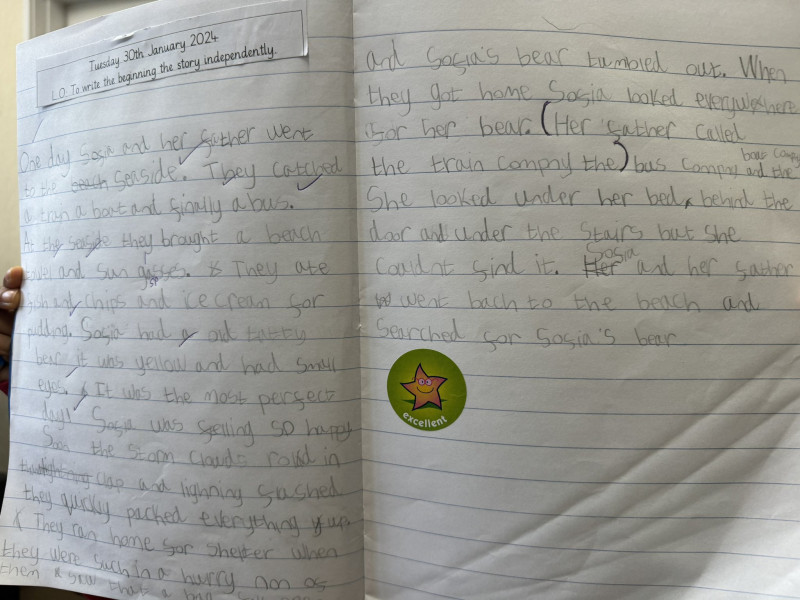 Tuesday 30th January 2024
L.O: To write the beginning the story independently.
One day Sofia and her father went
to the seaside. They catched
a train a boat and finally a bus.
At the seaside they brought a beach
towel and sun glasses. They ate
fish and chips and ice cream for
pudding. Sofia had a old tatty
bear it was yellow and had small
eyes. It was the most perfect
day! Sofia was feeling so happy
Soon the storm clouds rolld in
clap and lighning flashed
they quicky packed everything up
They ran home for shelter when
they were such in a hurry non of
them saw that a bag
and Sofia's bear tumbled out. When
they got home Sofia looked everywhere
for her bear. (Her father called
the train compny the) bus compny and the
boat compny
She looked under her bed, behind the
door and under the stairs but she
couldnt find it. Sofia and her father
went bach to the beach and
searched for Sofia's bear
excellent